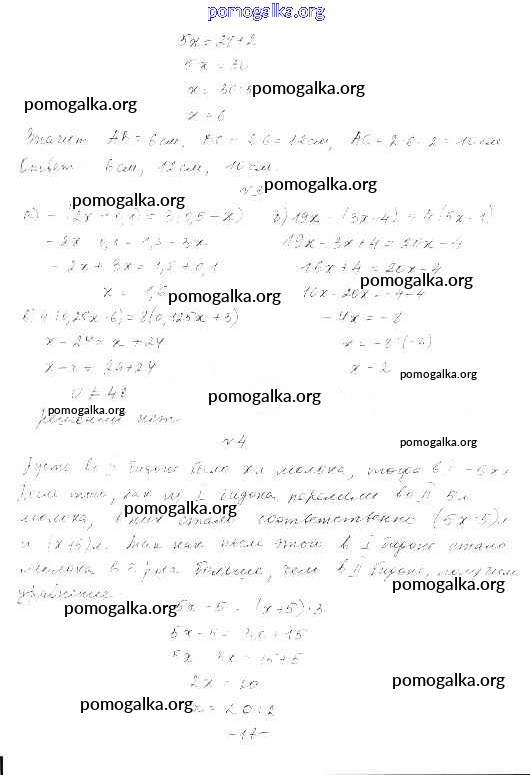 pomogalka.org
5x = 28+2
5x = 30
x = 30:5
pomogalka.org
pomogalka.org
x = 6
Значит AB = 6 см, BC = 2·6 = 12 см, AC = 2·6-2 = 10 см
Ответ: 6 см, 12 см, 10 см.
№3
pomogalka.org
pomogalka.org
а) -(2x+0,1) = 3(0,5-x) б) 19x-(3x-4) = 4(5x-1)
-2x-0,1 = 1,5-3x 19x-3x+4 = 20x-4
-2x+3x = 1,5+0,1 16x+4 = 20x-4
pomogalka.org
x = 1,6 16x-20x = -4-4
pomogalka.org
в) 4(0,25x-6) = 8(0,125x+3) -4x = -8
x-24 = x+24 x = -8:(-4)
x-x = 24+24 x = 2
pomogalka.org
0 ≠ 48
pomogalka.org
pomogalka.org
решений нет.
pomogalka.org
№4
Пусть во II бидоне было x л молока, тогда в I -5x л
После того, как из I бидона перелили во II 5 л
pomogalka.org
молока, в них стало соответственно (5x-5) л
и (x+5) л. Так как после этого в I бидоне стало
молока в 3 раза больше, чем во II бидоне, получим
pomogalka.org
уравнение:
pomogalka.org
5x-5 = (x+5)·3
5x-5 = 3x+15
5x-3x = 15+5
2x = 20
pomogalka.org
pomogalka.org
x = 20:2
-17-